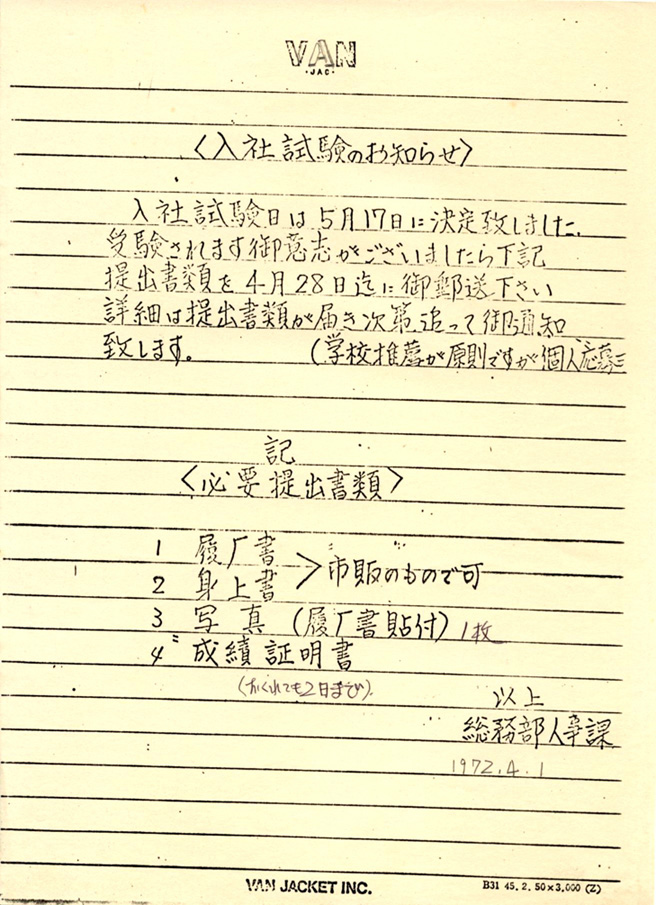 VAN
・JAC・
〈入社試験のお知らせ〉
入社試験日は5月17日に決定致しました.
受験されます御意志がございましたら下記
提出書類を4月28日迄に御郵送下さい
詳細は提出書類が届き次第追って御通知
致します。 (学校推薦が原則ですが個人応募
記
〈必要提出書類〉
1 履厂書
2 身上書 > 市販のもので可
3 写真 (履厂書貼付) 1枚
4 成績証明書
(おくれても2日まで)
以上
総務部人事課
1972.4.1
VAN JACKET INC.
B31 45.2.50×3,000 (Z)